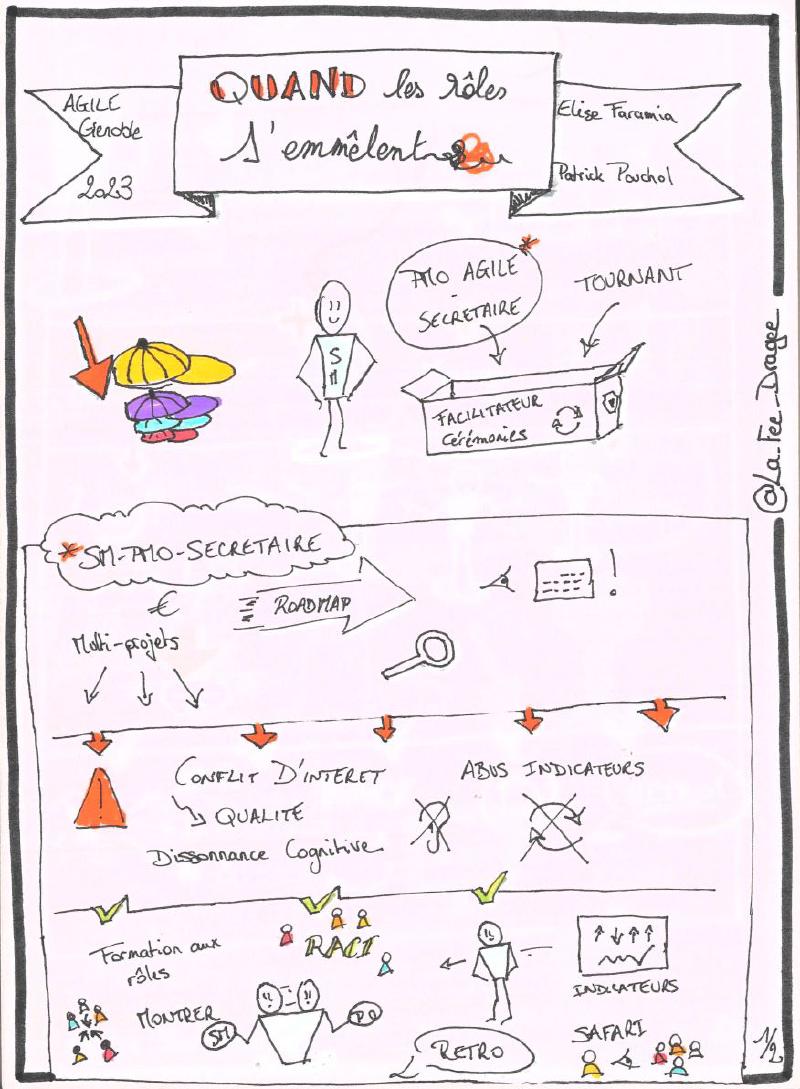 AGILE
Grenoble
2023
QUAND les rôles
s'emmêlent
Elise Faramia
Patrick Pouchol
PMO AGILE
-
SECRETAIRE
TOURNANT
S
M
FACILITATEUR
Cérémonies
@La_Fée_Dragée
* SM-PMO-SECRETAIRE
€
Multi-projets
ROADMAP
!
!
CONFLIT D'INTERET
QUALITÉ
Dissonnance Cognitive
ABUS INDICATEURS
Formation aux
rôles
RACI
MONTRER
SM
PO
RETRO
INDICATEURS
SAFARI
1/2